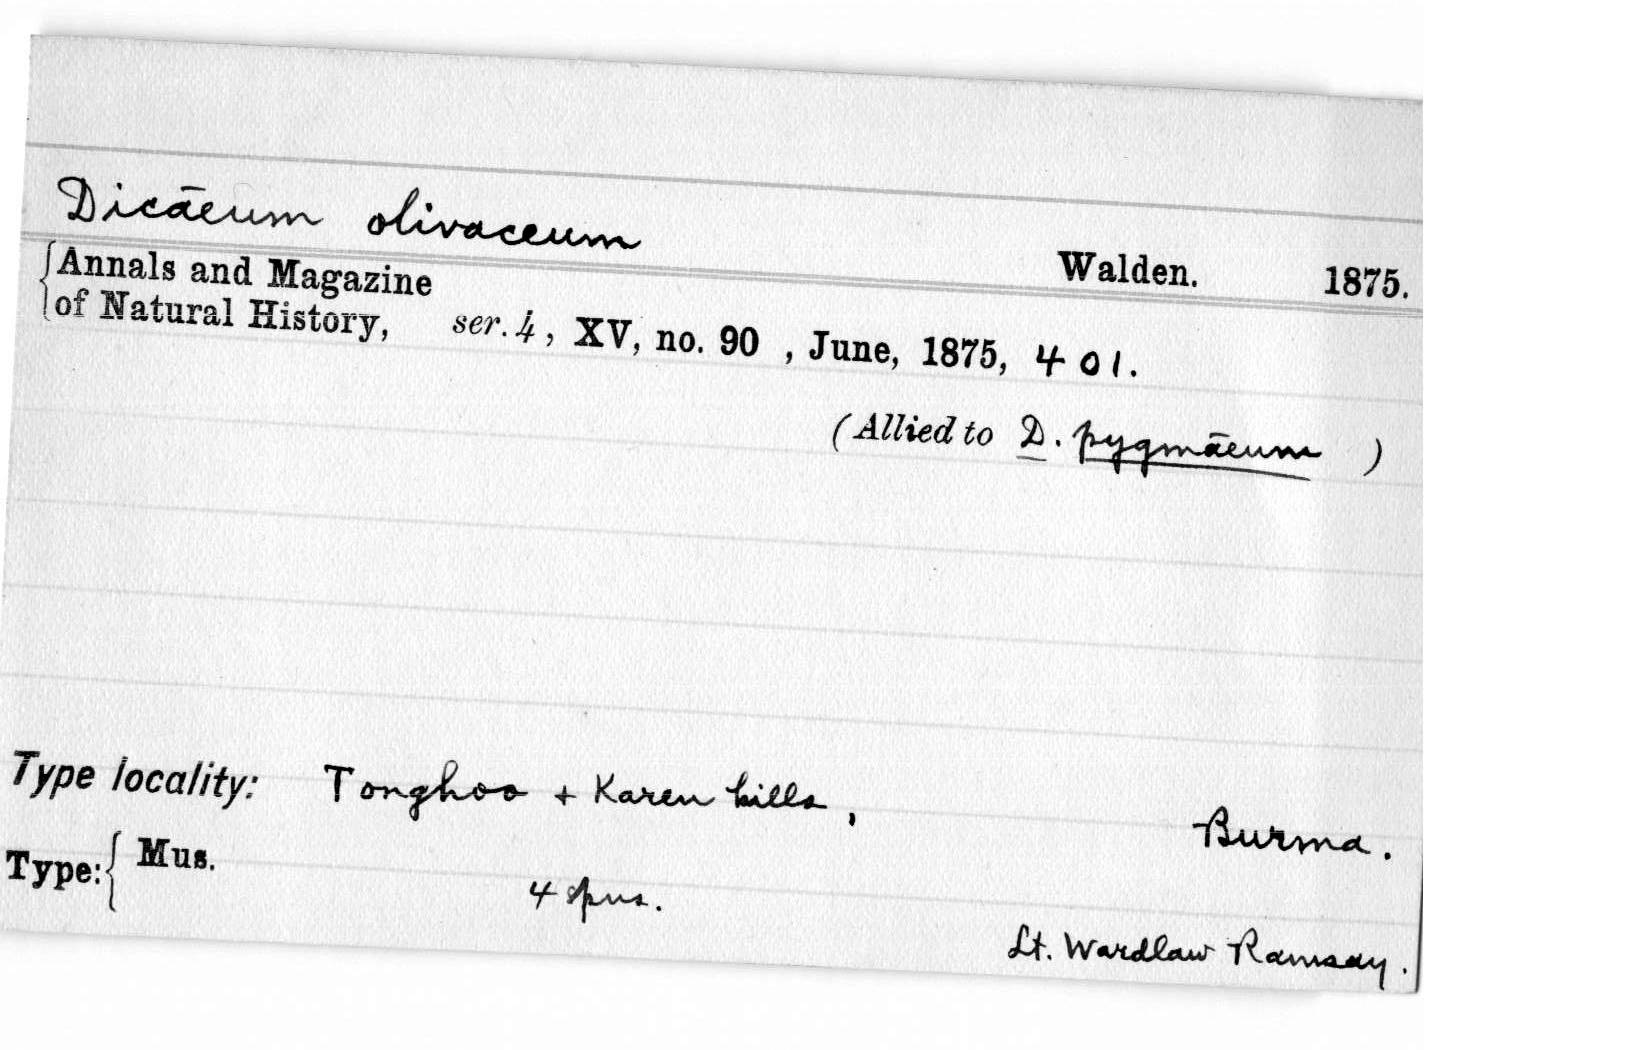 Dicāeum olivaceum
Walden. 1875.
Annals and Magazine
of Natural History, ser. 4, XV, no. 90, June, 1875, 401.
(Allied to D. pygmāeum)
Type locality: Tonghoo + Karen hills, Burma.
Type: Mus.
4 spns.
Lt. Wardlaw Ramsay.